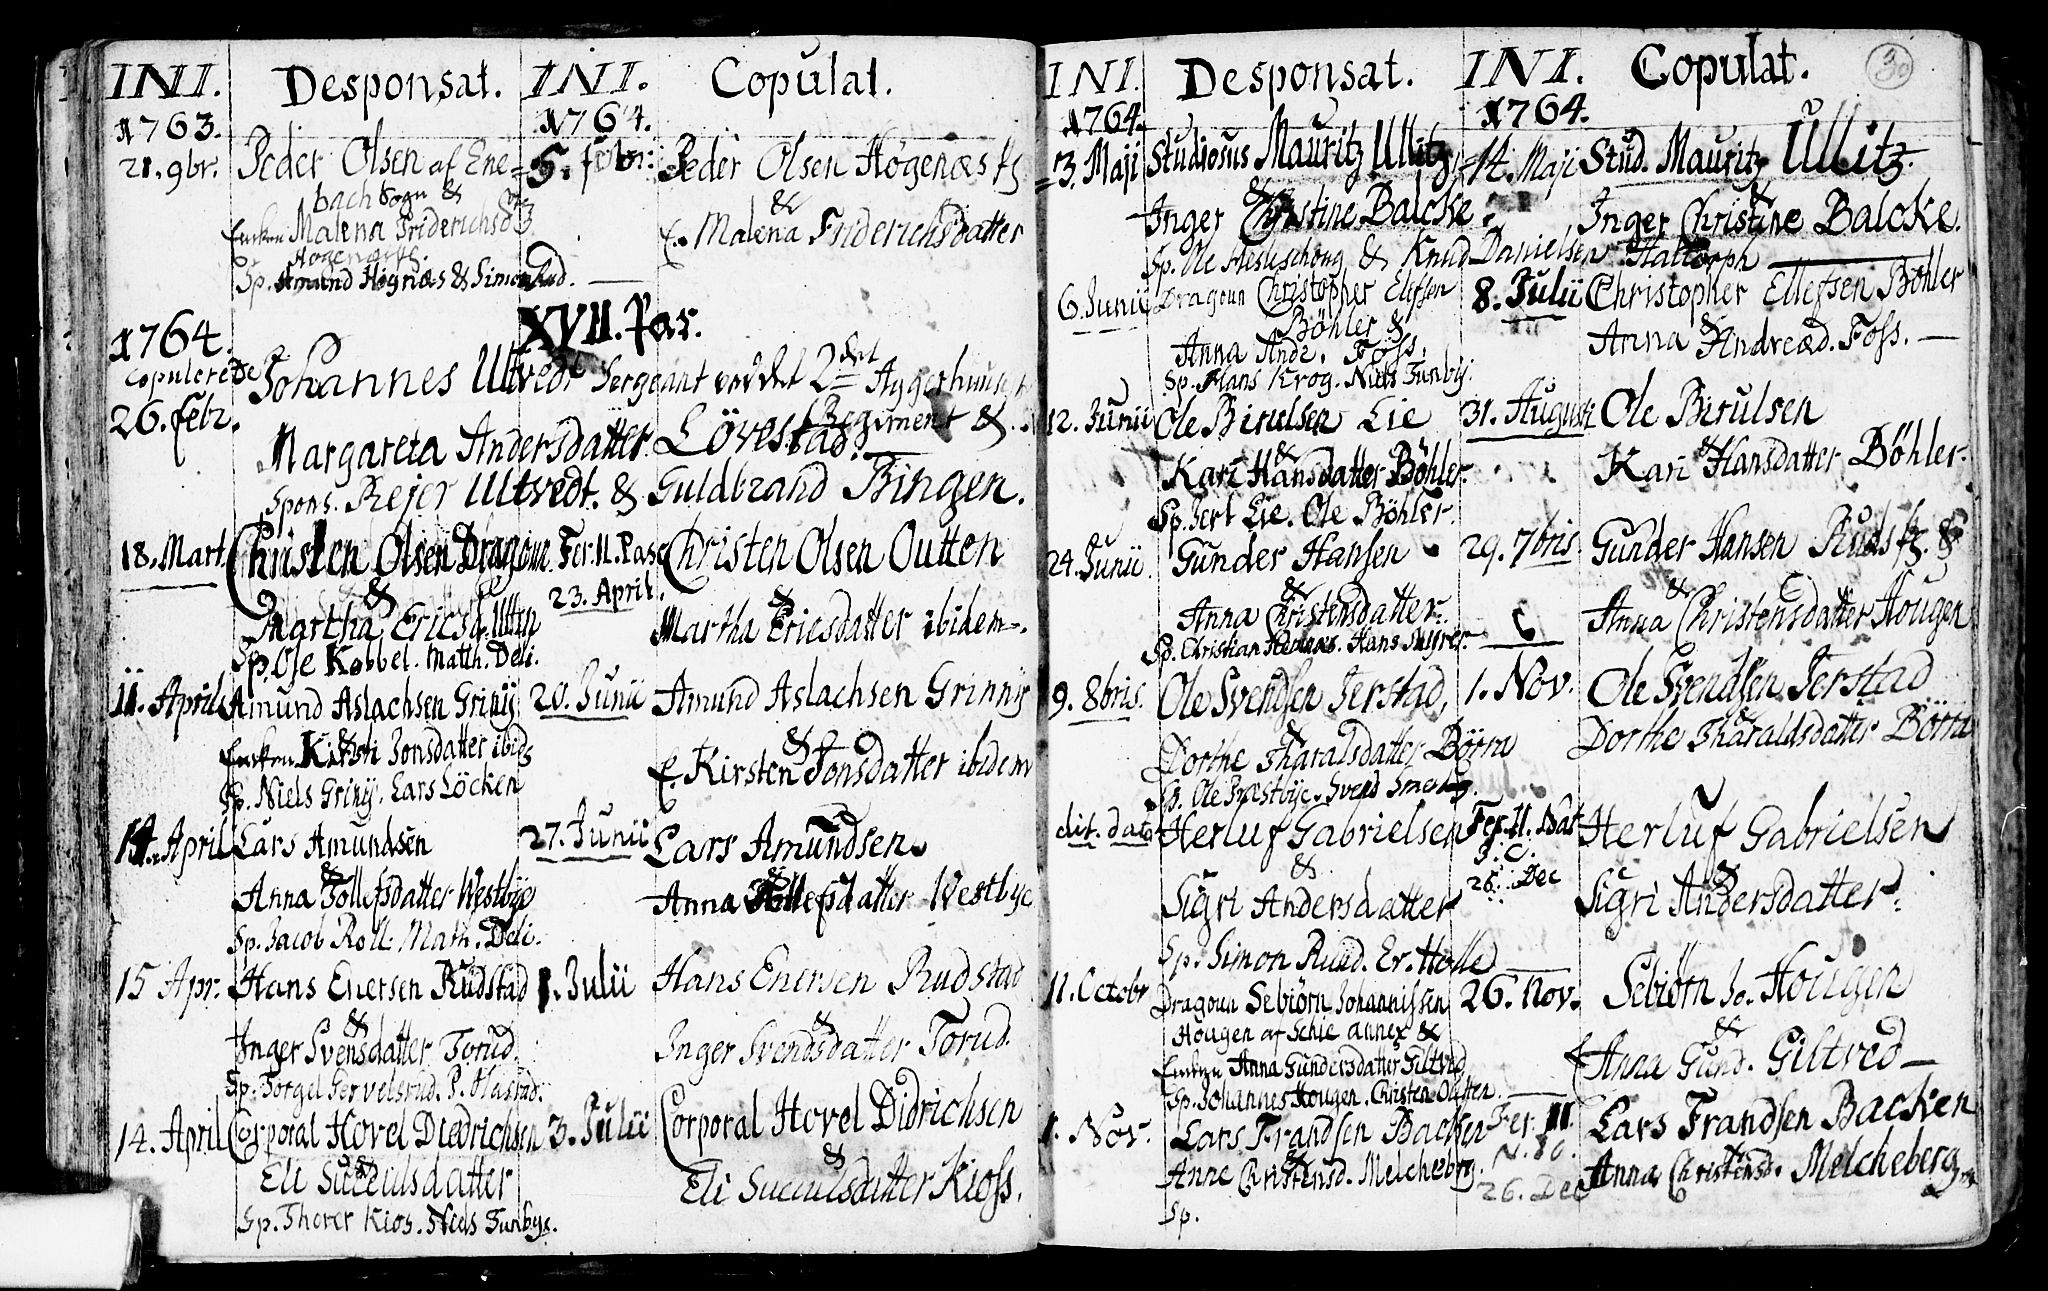 INI. Desponsat. INI. Copulat.
1763. 1764.
21. 9br. Peder Olsen af Ene= 5. febr: Peder Olsen Högenæs fz
bach Sogn & &
Enken Malena Friderichsd. E. Malena Friderichsdatter
Sp. Amund Högnæs & Simon Rud.
XVII. Par.
1764.
Copulerede Johannes Ultvedt Sergeant ved det 2det Aggerhuusiske
26. febr. Regiment &.
Margareta Andersdatter Lövestad.
Spons. Rejer Ultvedt. & Guldbrand Bingen.
18. Mart. Christen Olsen Dragoun. Fer. II. Pasc Christen Olsen Outten
& 23. April. &
Martha Ericsd. Utten Martha Ericsdatter ibidem.
Sp. Ole Kobbel. Matth. Deli.
11. April Amund Aslachsen Grinij 20. Junii Amund Aslachsen Grinnij
& &
Enken Kirsti Jonsdatter ibid. E. Kirsten Jonsdatter ibidem
Sp. Niels Grinij. Lars Löcken
14. April Lars Amundsen 27. Junii Lars Amundsen.
& &
Anna Tollefsdatter Westbye Anna Tollefsdatter Westbye
Sp. Jacob Roll. Math. Deli.
15 Apr. Hans Enersen Rudstad 1. Julii Hans Enersen Rudstad
& &
Inger Svensdatter Torud. Inger Svendsdatter Torud.
Sp. Torgel Gervelsrud. P. Hastad.
14. April Corporal Hovel Diedrichsen 3. Julii Corporal Hovel Didrichsen
& &
Eli Suculsdatter Eli Suculsdatter Kioss.
Sp. Thorer Kios. Niels Tunbye.
INI. Desponsat. INI. Copulat. 30
1764. 1764.
3. Maji Studiosus Mauritz Ullitz 14. Maji Stud. Mauritz Ullitz.
& &
Inger Christine Balcke. Inger Christine Balcke.
Sp. Ole Hesleschoug & Knud Danielsen Hattorph
6. Junii Dragoun Christopher Elefsen 8. Julii Christopher Ellefsen Böhler
Böhler & &
Anna Andr. Foss. Anna Andreæd. Foss.
Sp. Hans Krog. Niels Tunbij.
12. Junii Ole Birulsen Lie 31. Augusti Ole Birulsen
& &
Kari Hansdatter Böhler. Kari Hansdatter Böhler.
Sp. Iert Lie. Ole Böhler.
24. Junii. Gunder Hansen 29. 7bris Gunder Hansen Ruds fz. &
& &
Anna Christensdatter. Anna Christensdatter Hougen
Sp. Christian Hennes. Hans Myrer.
9. 8bris. Ole Svendsen Jerstad, 1. Nov. Ole Svendsen Jerstad
&
Dorthe Tharalsdatter Börra Dorthe Tharaldsdatter Börra
Sp. Ole Præstbije. Svend
dit. dato Herluf Gabrielsen Fer. II. Nat. Herluf Gabrielsen
& J. C. &
Sigri Andersdatter 26. Dec Sigri Andersdatter.
Sp. Simon Ruud. Er. Holle
11. Octobr Dragoun Sebiörn Johannissen 26. Nov. Sebiörn Jo. Hougen
Hougen af Schie annex & &
Enken Anna Gundersdatter Giltved E Anna Gund. Giltved
Sp. Johannes Hougen. Christen Outten.
1. Nov. Lars Frandsen Backen Fer. III. Lars Frandsen Backen
& &
Anne Christensd. Melcheberg 26. Dec Anna Christensd. Melcheberg
Sp.